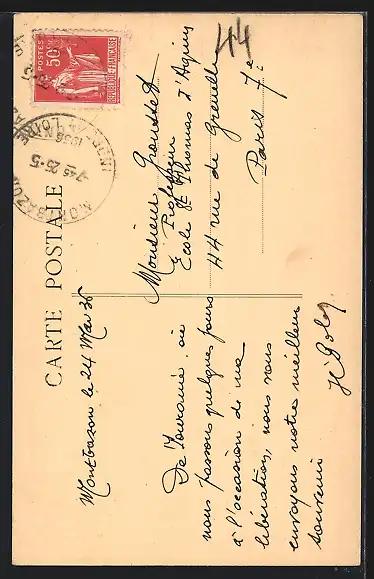 CARTE POSTALE
Montbazon le 24 Mai 36
De Touraine, où
nous passons quelques jours
à l'occasion de ma
libération, nous vous
envoyons notre meilleur
souvenir
POSTES
50c
REPUBLIQUE-FRANÇAISE
MONTBAZON
INDRE-ET-LOIRE
7 45
25-5
1936
44
Monsieur
Professeur
Ecole St Thomas d'Aquin
44 rue de Grenelle
Paris 7e